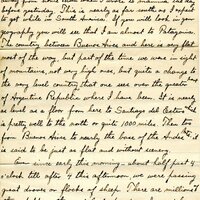 day before yesterday. This is nearly as far south as I expect
to get while in South America. If you will look in your
geography you will see that I am almost to Patagonia.
The country between Buenos Aires and here is very flat
most of the way, but part of the time we were in sight
of mountains, not very high ones, but quite a change to
the very level country that one sees over the greater
of Argentine Republic where I have been. It is nearly
as level as a floor from here to Santiago del Estero
is pretty well to the north or quite 1000 miles. Then too
from Buenos Aires to nearly the base of the Andes
is said to be just as flat and without scenery.
Ever since early this morning - about half past 4
o'clock till after 4 this afternoon, we were passing
great droves or flocks of sheep. There are millions